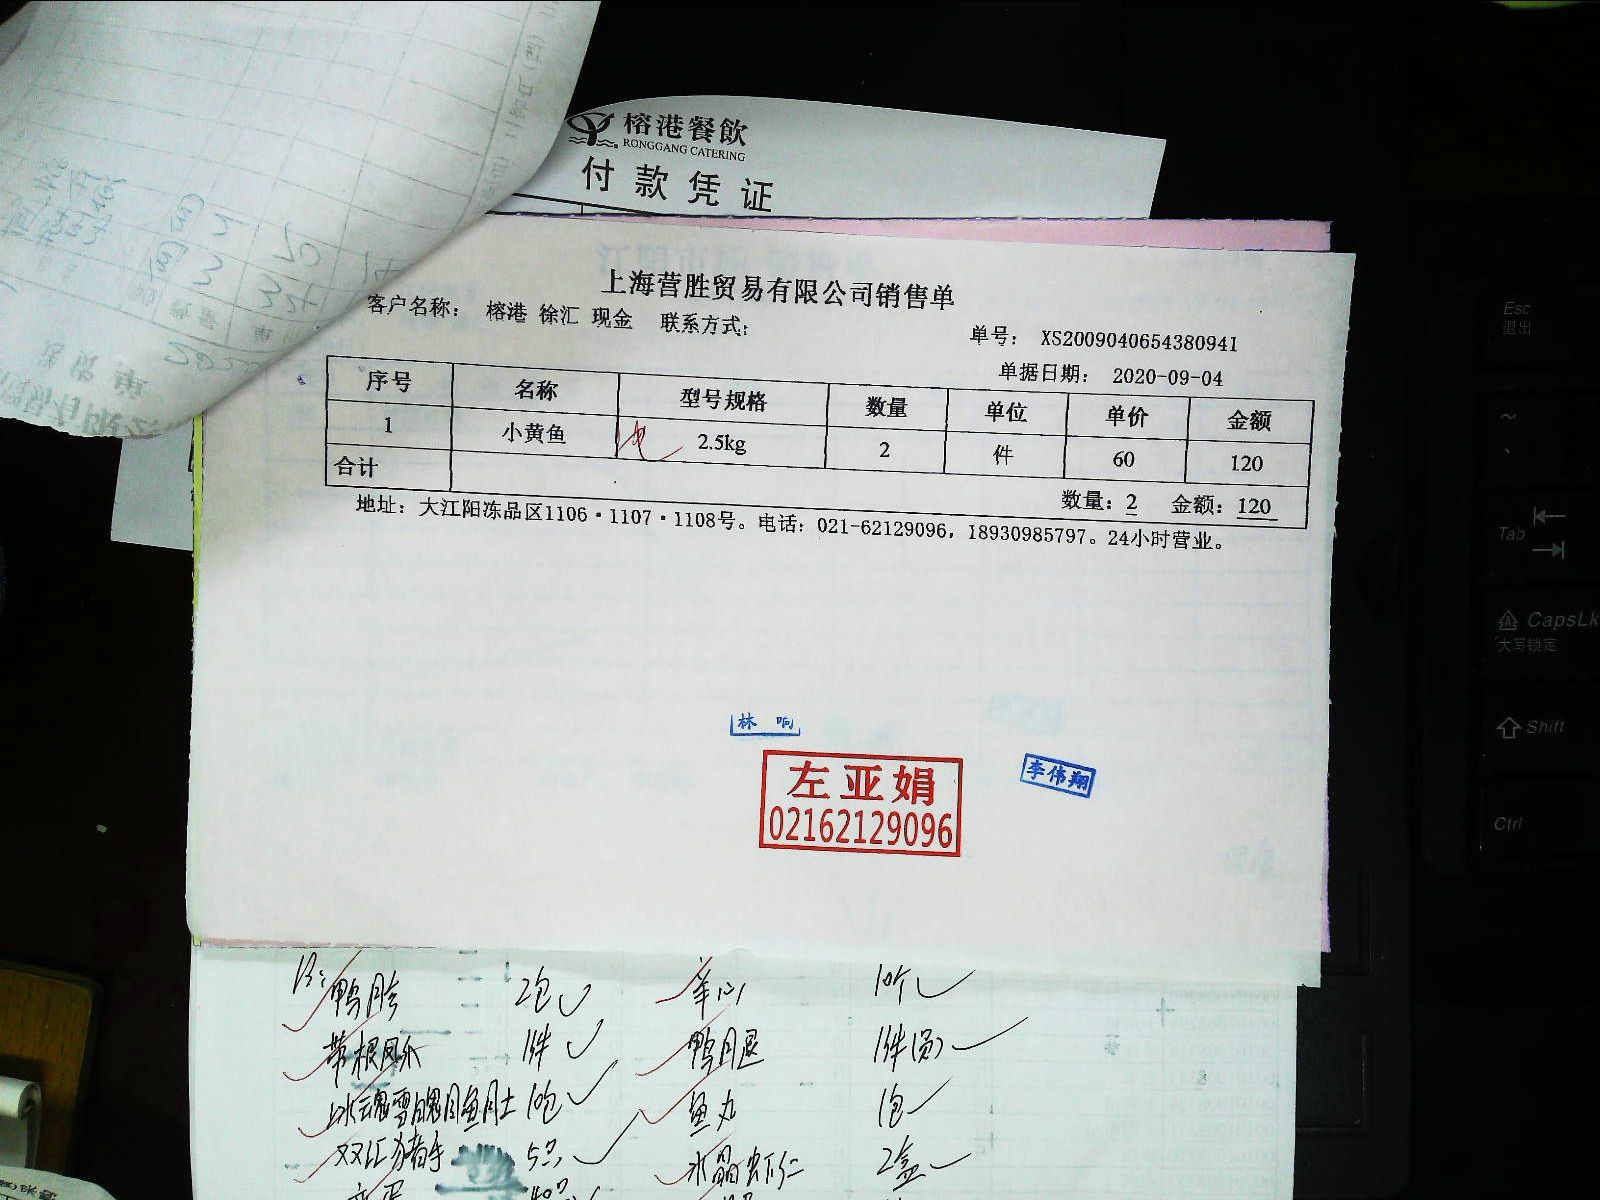 榕港餐飲
RONGGANG CATERING
付款凭证
上海营胜贸易有限公司销售单
客户名称: 榕港 徐汇 现金 联系方式:
单号: XS2009040654380941
单据日期: 2020-09-04
序号 名称 型号规格 数量 单位 单价 金额
1 小黄鱼 2.5kg 2 件 60 120
合计 数量:2 金额:120
地址:大江阳冻品区1106·1107·1108号。电话:021-62129096,18930985797。24小时营业。
林 响
左亚娟
02162129096
李伟翔
鸭胗 2包 羊心 10个
带根凤爪 1件 鸭腿 1件(圆)
10包 鱼丸 1包
双汇猪手 5只 水晶虾仁 2盒
Esc
退出
~
Tab
CapsLk
大写锁定
Shift
Ctrl